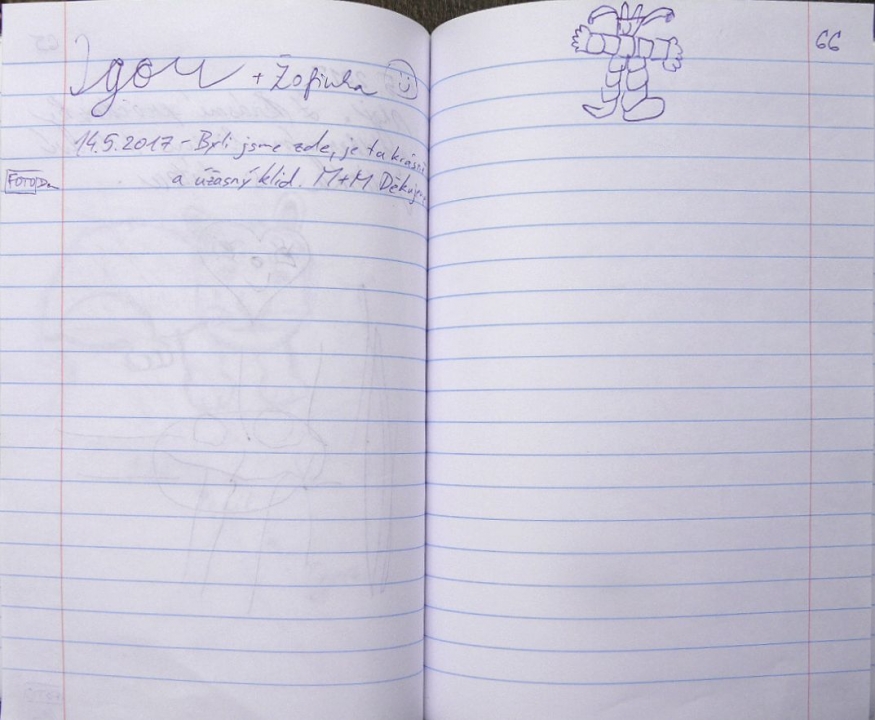 Igor + Žofinka
14.5.2017 - Byli jsme zde, je to krásné
a úžasný klid. M+M Děkujeme
FOTO
66